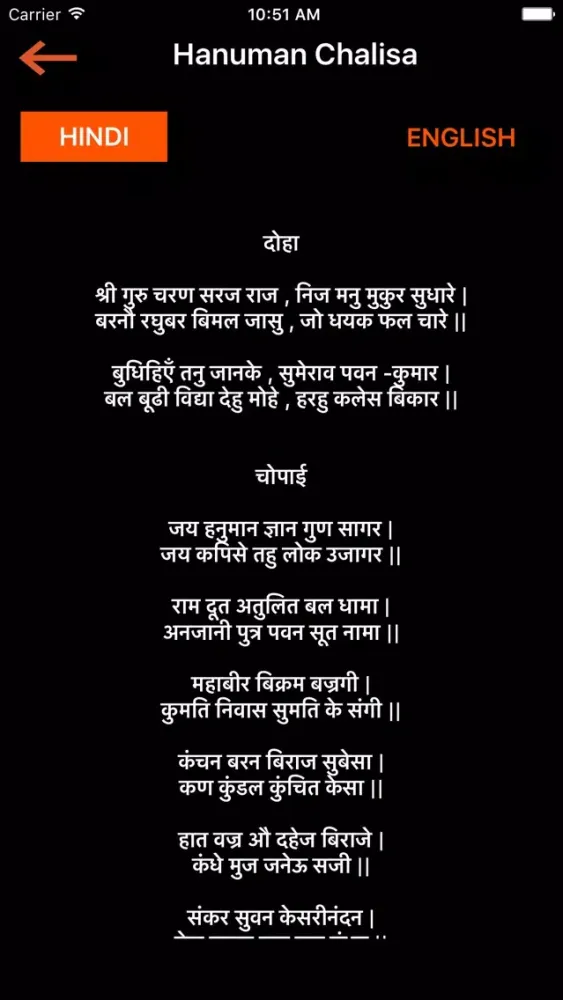 Carrier 10:51 AM
Hanuman Chalisa
HINDI ENGLISH
दोहा
श्री गुरु चरण सरज राज , निज मनु मुकुर सुधारे |
बरनौ रघुबर बिमल जासु , जो धयक फल चारे ||
बुधिहिएँ तनु जानके , सुमेराव पवन -कुमार |
बल बूढी विद्या देहु मोहे , हरहु कलेस बिकार ||
चोपाई
जय हनुमान ज्ञान गुण सागर |
जय कपिसे तहु लोक उजागर ||
राम दूत अतुलित बल धामा |
अनजानी पुत्र पवन सूत नामा ||
महाबीर बिक्रम बज्रगी |
कुमति निवास सुमति के संगी ||
कंचन बरन बिराज सुबेसा |
कण कुंडल कुंचित केसा ||
हात वज्र औ दहेज बिराजे |
कंधे मुज जनेऊ सजी ||
संकर सुवन केसरीनंदन |